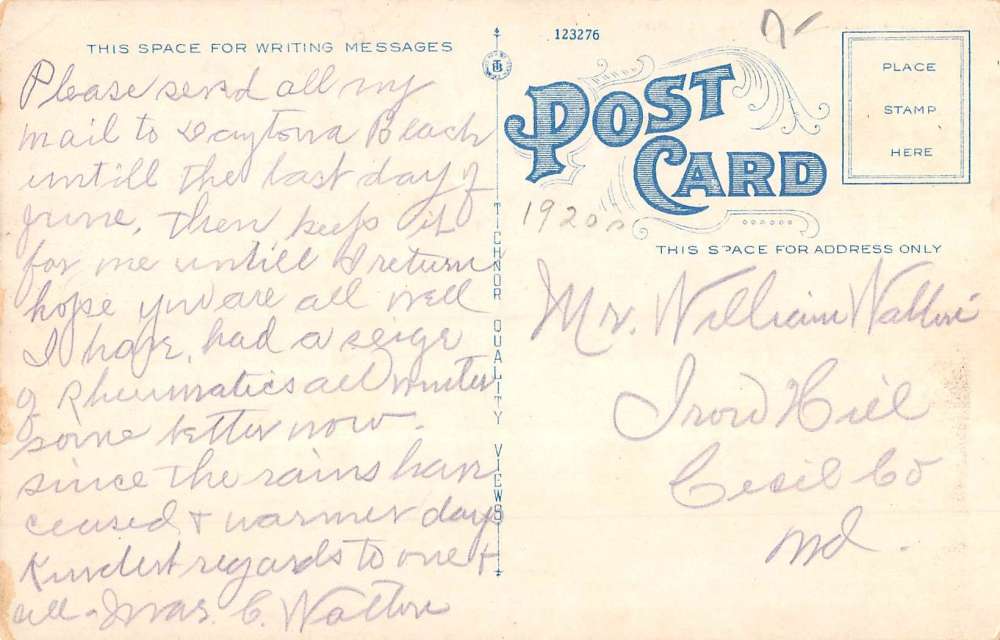 THIS SPACE FOR WRITING MESSAGES
Please send all my
mail to Daytona Beach
untill the last day of
june, then keep it
for me untill I return
hope you are all well
I have, had a seige
of Rheumatics all winter
some better now.
since the rains have
ceased + warmer days
Kindest regards to one +
all - C. Walton
TICHNOR QUALITY VIEWS
123276
7-
POST
CARD
1920s
PLACE
STAMP
HERE
THIS SPACE FOR ADDRESS ONLY
Mr. William Walton
Iron Hill
Cecil Co
Md.